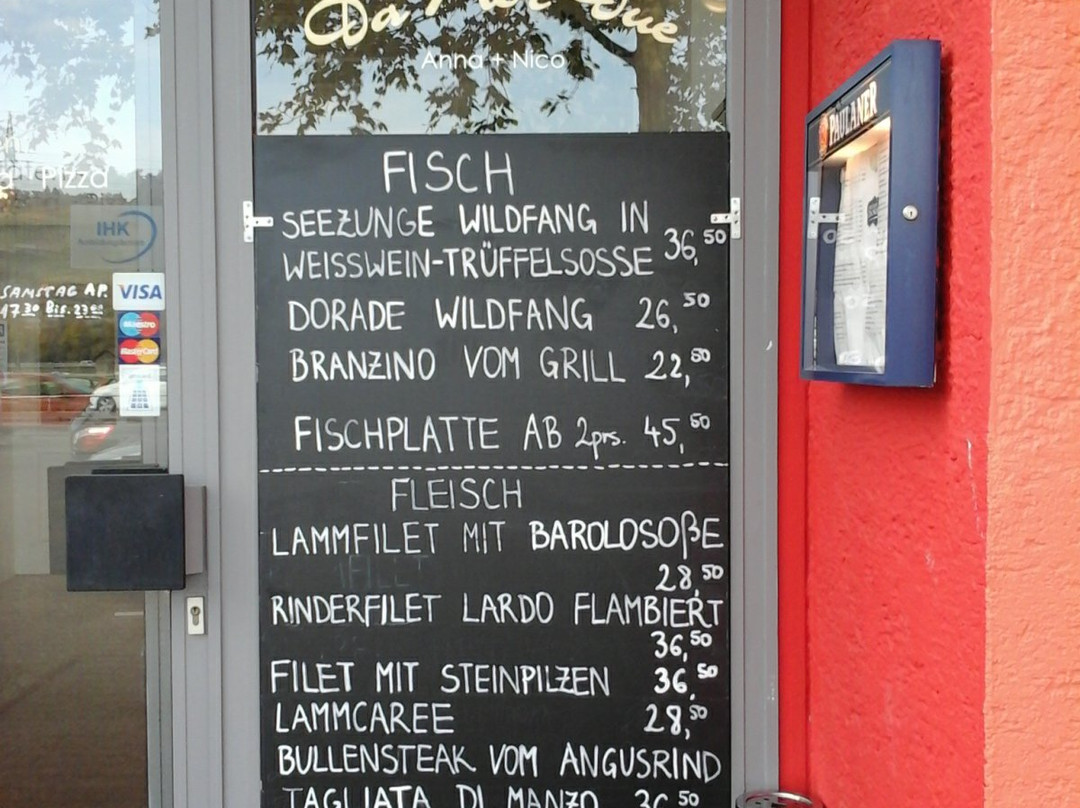 Anna + Nico
PAULANER
Pizza
IHK
SAMSTAG AP.
17³⁰ Bis. 23⁰⁰
VISA
Maestro
MasterCard
FISCH
SEEZUNGE WILDFANG IN
WEISSWEIN-TRÜFFELSOSSE 36,50
DORADE WILDFANG 26,50
BRANZINO VOM GRILL 22,80
FISCHPLATTE AB 2prs. 45,60
FLEISCH
LAMMFILET MIT BAROLOSOßE
28,50
RINDERFILET LARDO FLAMBIERT
36,50
FILET MIT STEINPILZEN 36,50
LAMMCAREE 28,50
BULLENSTEAK VOM ANGUSRIND
TAGLIATA DI MANZO